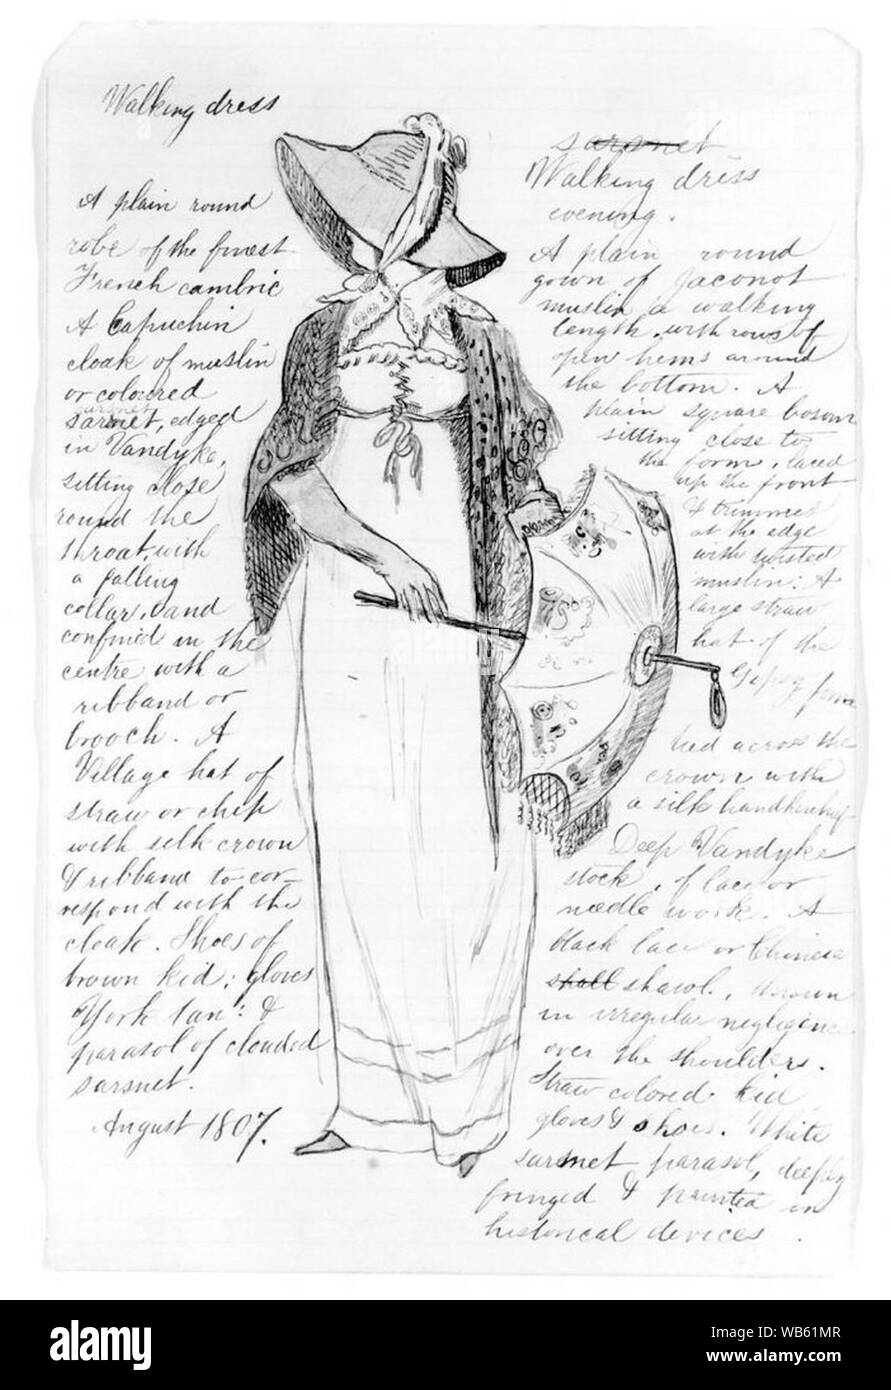 Walking dress
A plain round
robe of the finest
French cambric
A Capuchin
cloak of muslin
or coloured
sarsnet
sarsnet, edged
in Vandyke,
sitting close
round the
throat, with
a falling
collar, and
confined in the
centre with a
ribband or
brooch. A
Village hat of
straw or chip
with silk crown
& ribband to cor-
respond with the
cloak. Shoes of
brown kid; gloves
York tan: &
parasol of clouded
sarsnet.
August 1807.
sarsnet
Walking dress
evening.
A plain round
gown of Jaconot
muslin, a walking
length, with rows of
open hems around
the bottom. A
plain square bosom
sitting close to
the form, laced
up the front
& trimmed
at the edge
with twisted
muslin: A
large straw
hat of the
Gipsy form
tied across the
crown with
a silk handkerchief
Deep Vandyke
stock, of lace or
needle work. A
black lace or Chinese
shall shawl, thrown
in irregular negligence
over the shoulders.
Straw colored kid
gloves & shoes. White
sarsnet parasol, deeply
fringed & painted in
historical devices.
alamy
a
alamy
Image ID: WB61MR
www.alamy.com